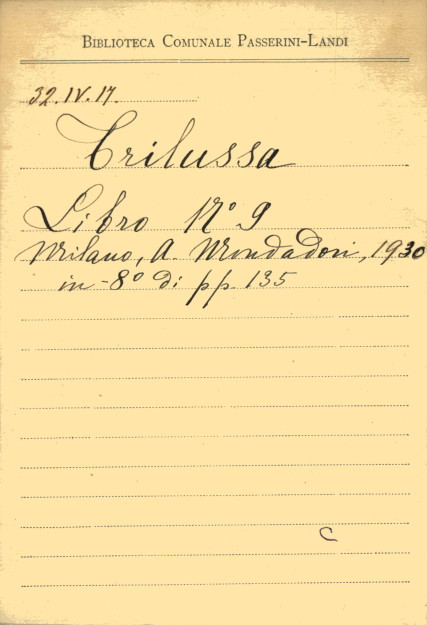 BIBLIOTECA COMUNALE PASSERINI-LANDI
32.IV.17.
Trilussa
Libro N° 9
Milano, A. Mondadori, 1930
in-8° di pp. 135
C